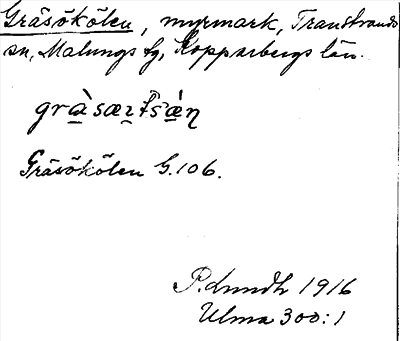 Gräsökölen, myrmark, Transtrands
sn, Malungs fg, Kopparbergs län.
Gräsökölen G.106.
P. Lundh 1916
Ulma 300:1